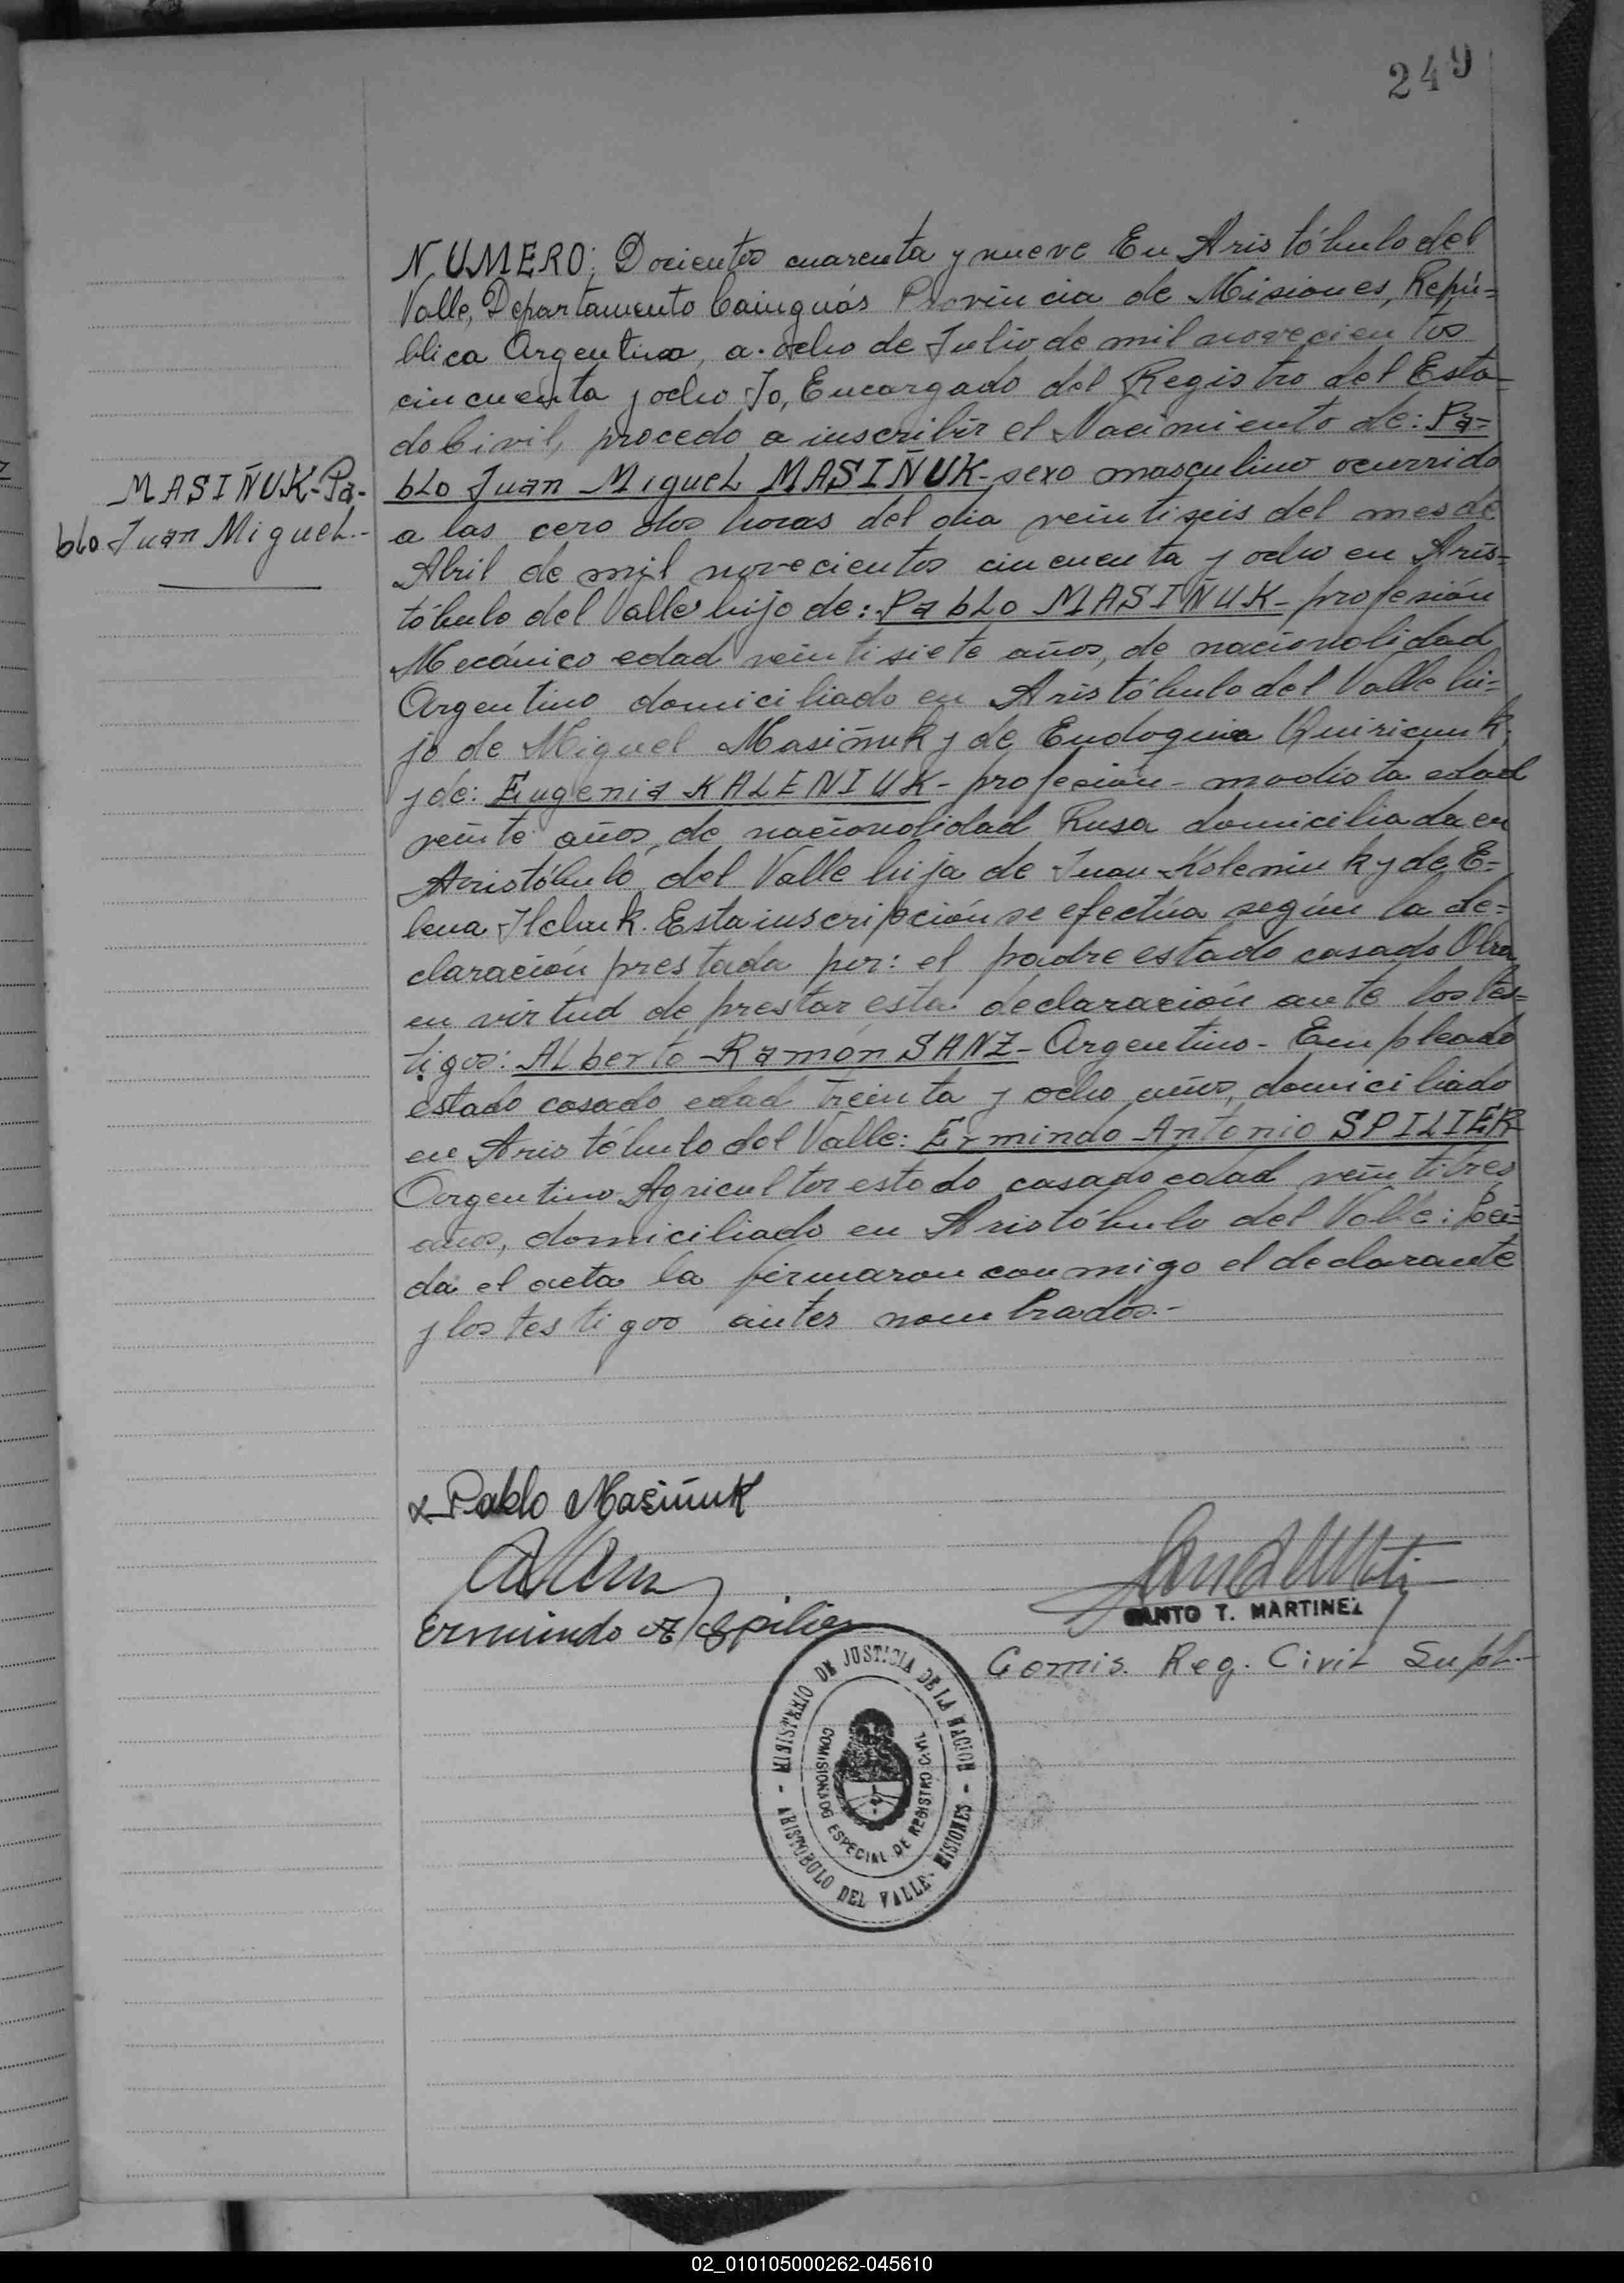 249
NUMERO; Docientos cuarenta y nueve En Aristóbulo del
Valle, Departamento Cainguás Provincia de Misiones, Repú=
blica Argentina, a ocho de Julio de mil novecientos
cincuenta y ocho Yo, Encargado del Registro del Esta-
do Civil, procedo a inscribir el Nacimiento de: Pa=
blo Juan Miguel MASIÑUK- sexo masculino ocurrido
a las cero dos horas del dia veintiseis del mes de
Abril de mil novecientos cincuenta y ocho en Aris=
tóbulo del Valle hijo de: Pablo MASIÑUK- profesión
Mecánico edad veintisiete años, de nacionalidad
Argentino domiciliado en Aristóbulo del Valle hi=
jo de Miguel Masiñuk y de Eudoquia Quiricuuk;
y de: Eugenia KALENIUK- profecion- modista edad
veinte años, de nacionalidad Rusa domiciliada en
Aristóbulo del Valle hija de Juan Koleniuk y de E-
lena Ilchuk. Esta inscripción se efectúa según la de=
claración prestada por: el padre estado casado Obra
en virtud de prestar esta declaración ante los tes=
tigos: Alberto Ramón SANZ- Argentino- Empleado
estado casado edad treinta y ocho años, domiciliado
en Aristóbulo del Valle: Ermindo Antonio SPILIER
Argentino Agricultor estado casado edad veintitres
años, domiciliado en Aristóbulo del Valle: Leí=
da el acta la firmaron conmigo el declarante
y los testigos antes nombrados.-
MASIÑUK-Pa-
blo Juan Miguel.-
Pablo Masiñuk
Ermindo A. Spilier
SANTO T. MARTINEZ
Comis. Reg. Civil Supl.-
MINISTERIO DE JUSTICIA DE LA NACION
COMISIONADO ESPECIAL DE REGISTRO CIVIL
- ARISTOBULO DEL VALLE - MISIONES -
02_010105000262-045610